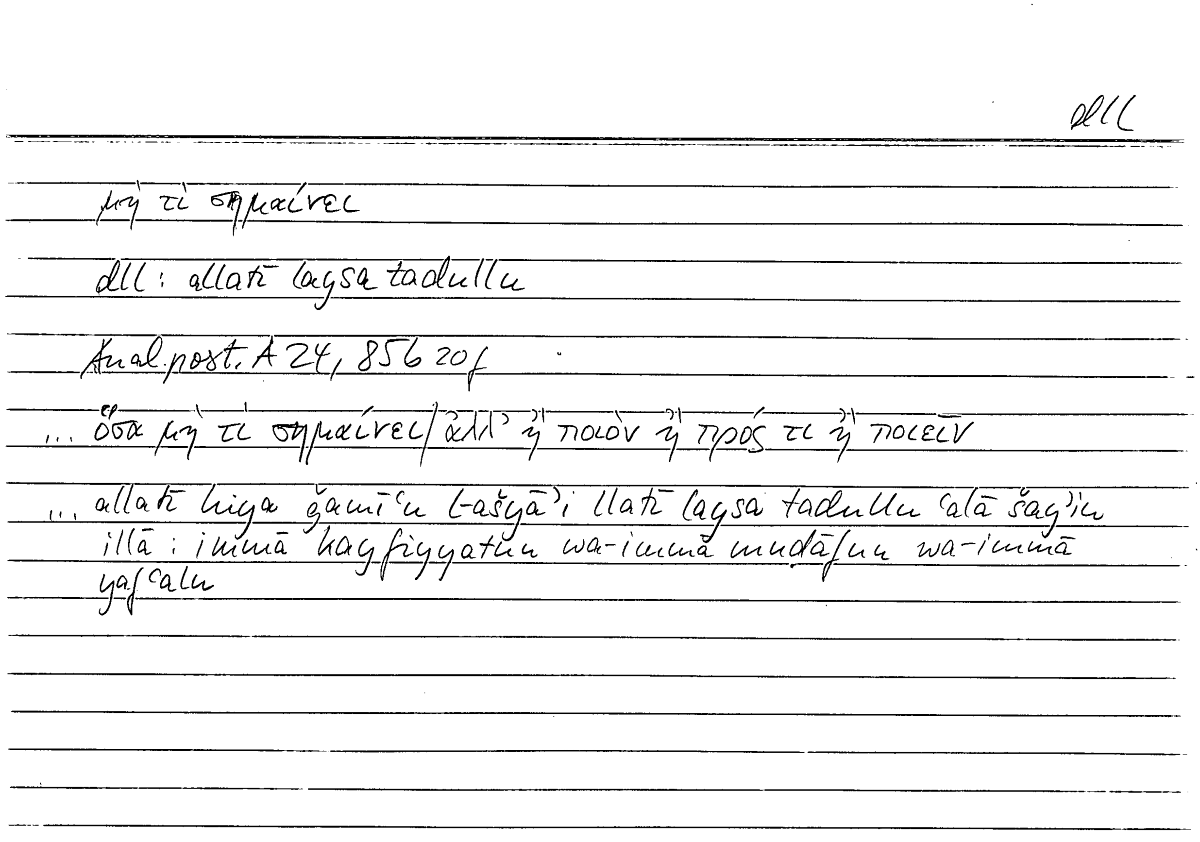 dll
μὴ τὶ σημαίνει
dll : allatī laysa tadullu
Anal. post. A 24, 85b 20f
... ὅσα μὴ τὶ σημαίνει / ἀλλ' ἢ ποιὸν ἢ πρός τι ἢ ποιεῖν
... allatī hiya ǧamīʿu l-ašyāʾi llatī laysa tadullu ʿalā šayʾin
illā : immā kayfiyyatun wa-immā muḍāfun wa-immā
yafʿalu